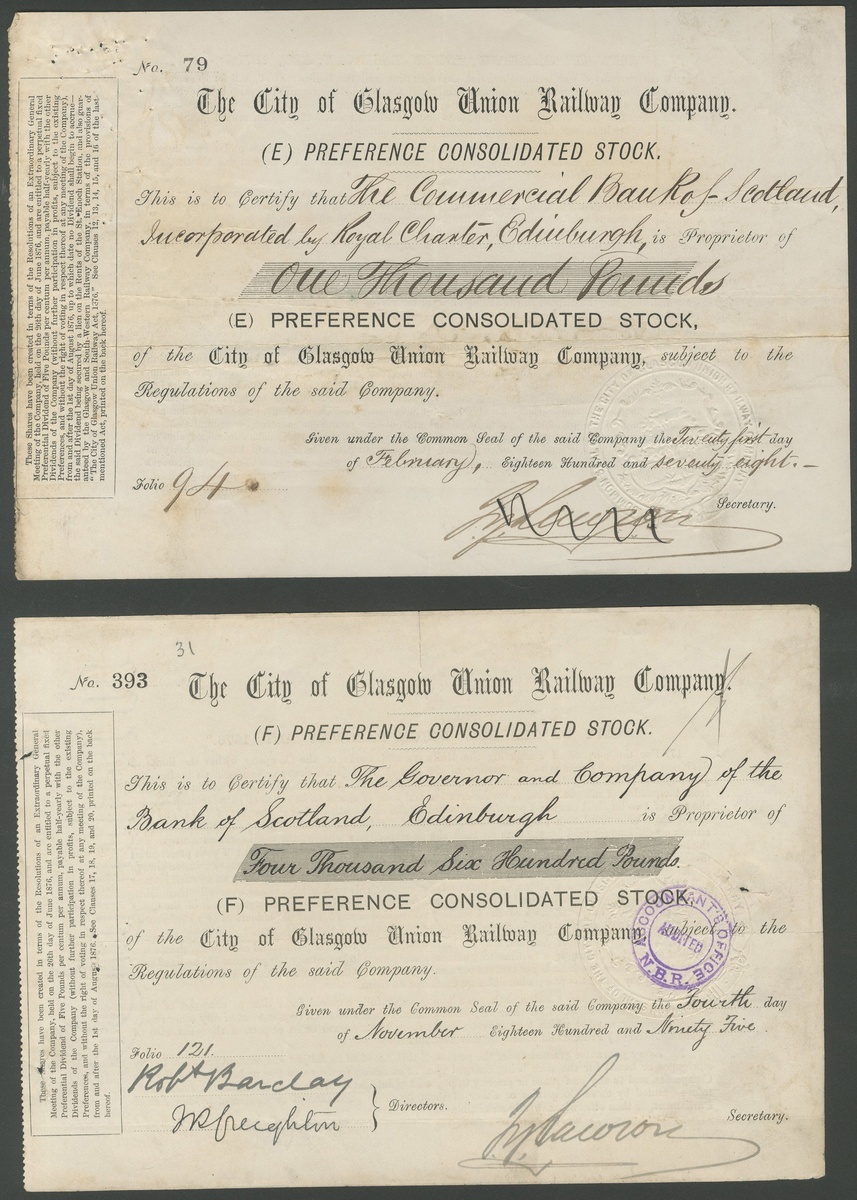 No. 79
The City of Glasgow Union Railway Company.
(E) PREFERENCE CONSOLIDATED STOCK.
This is to Certify that The Commercial Bank of Scotland,
Incorporated by Royal Charter, Edinburgh, is Proprietor of
One Thousand Pounds
(E) PREFERENCE CONSOLIDATED STOCK,
of the City of Glasgow Union Railway Company, subject to the
Regulations of the said Company.
Given under the Common Seal of the said Company the Twenty first day
of February, Eighteen Hundred and seventy eight.—
Folio 94
Secretary.
These Shares have been created in terms of the Resolutions of an Extraordinary General
Meeting of the Company, held on the 26th day of June 1876, and are entitled to a perpetual fixed
Preferential Dividend of Five Pounds per centum per annum, payable half-yearly with the other
Dividends of the Company (without further participation in profits, subject to the existing
Preferences, and without the right of voting in respect thereof at any meeting of the Company),
from and after the 1st day of August 1876, up to which date no Dividend shall begin to accrue—
the said Dividend being secured by a lien on the Rents of the St. Enoch Station, and also guar-
anteed by the Glasgow and South-Western Railway Company, in terms of the provisions of
"The City of Glasgow Union Railway Act, 1876." See Clauses 12, 13, 14, 15, and 16 of the last-
mentioned Act, printed on the back hereof.
31
No. 393
The City of Glasgow Union Railway Company.
(F) PREFERENCE CONSOLIDATED STOCK.
This is to Certify that The Governor and Company of the
Bank of Scotland, Edinburgh is Proprietor of
Four Thousand Six Hundred Pounds
(F) PREFERENCE CONSOLIDATED STOCK,
of the City of Glasgow Union Railway Company, subject to the
Regulations of the said Company.
Given under the Common Seal of the said Company the Fourth day
of November Eighteen Hundred and Ninety Five.
Folio 121.
Robt Barclay
Creighton
Directors.
Secretary.
ACCOUNTANT'S OFFICE
AUDITED
N.B.R.
These Shares have been created in terms of the Resolutions of an Extraordinary General
Meeting of the Company, held on the 26th day of June 1876, and are entitled to a perpetual fixed
Preferential Dividend of Five Pounds per centum per annum, payable half-yearly with the other
Dividends of the Company (without further participation in profits, subject to the existing
Preferences, and without the right of voting in respect thereof at any meeting of the Company),
from and after the 1st day of August 1876. See Clauses 17, 18, 19, and 20, printed on the back
hereof.